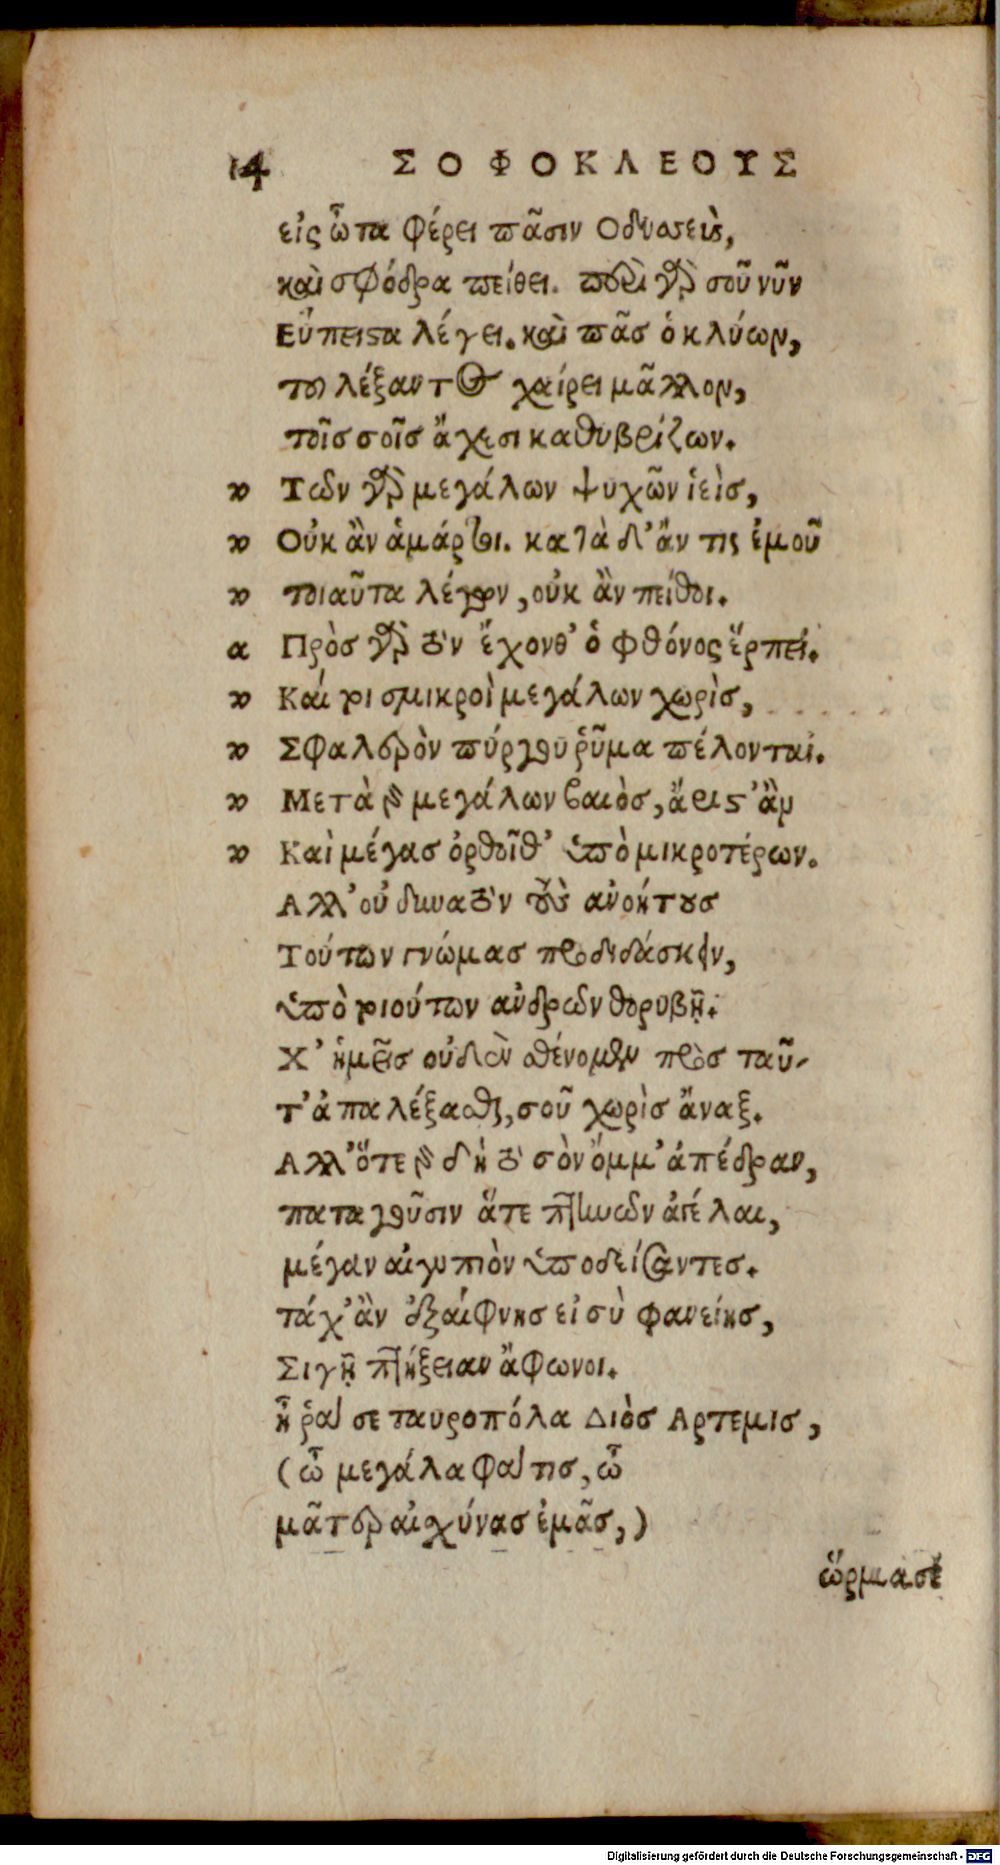 14 ΣΟΦΟΚΛΕΟΥΣ
εἰς ὦτα φέρει πᾶσιν Οδυσσεὺς,
καὶ σφόδρα πείθει. περὶ γὰρ σοῦ νῦν
Εὔπειστα λέγει. καὶ πᾶσ ὁ κλύων,
τοῦ λέξαντος χαίρει μᾶλλον,
τοῖσ σοῖσ ἄχεσι καθυβρίζων.
„ Τῶν γὰρ μεγάλων ψυχῶν ἱεὶσ,
„ Οὐκ ἂν ἁμάρτοι. κατὰ δ' ἄν τις ἐμοῦ
„ τοιαῦτα λέγων, οὐκ ἂν πείθοι.
α Πρὸσ γὰρ τὸν ἔχονθ' ὁ φθόνος ἕρπει.
„ Καί τοι σμικροὶ μεγάλων χωρὶσ,
„ Σφαλερὸν πύργου ῥῦμα πέλονται.
„ Μετὰ γὰρ μεγάλων βαιὸσ, ἄριστ' ἂν
„ Καὶ μέγασ ὀρθοῖθ' ὑπὸ μικροτέρων.
Αλλ' οὐ δυνατὸν τοὺς ἀνοήτουσ
Τούτων γνώμασ προδιδάσκειν,
ὑπὸ τοιούτων ἀνδρῶν θορυβῇ.
Χ' ἡμεῖσ οὐδὲν σθένομεν πρὸσ ταῦ-
τ' ἀπαλέξασθαι, σοῦ χωρὶσ ἄναξ.
Αλλ' ὅτε γὰρ δὴ τὸ σὸν ὄμμ' ἀπέδραν,
παταγοῦσιν ἅτε πτηνῶν ἀγέλαι,
μέγαν αἰγυπιὸν ὑποδείσαντεσ.
τάχ' ἂν ἐξαίφνησ εἰ σὺ φανείησ,
Σιγῇ πτήξειαν ἄφωνοι.
ἦ ῥά σε ταυροπόλα Διὸσ Αρτεμισ,
(ὦ μεγάλα φάτισ, ὦ
μᾶτερ αἰσχύνασ ἐμᾶσ,)
ὥρμασε
Digitalisierung gefördert durch die Deutsche Forschungsgemeinschaft - DFG